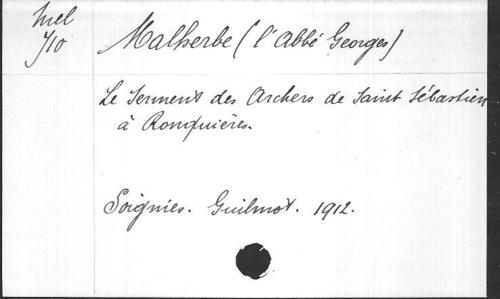 Mel
Malherbe (l'Abbé Georges)
Le Serment des Archers de Saint Sébastien
à Ronquières.
Soignies. Guilmot. 1912.